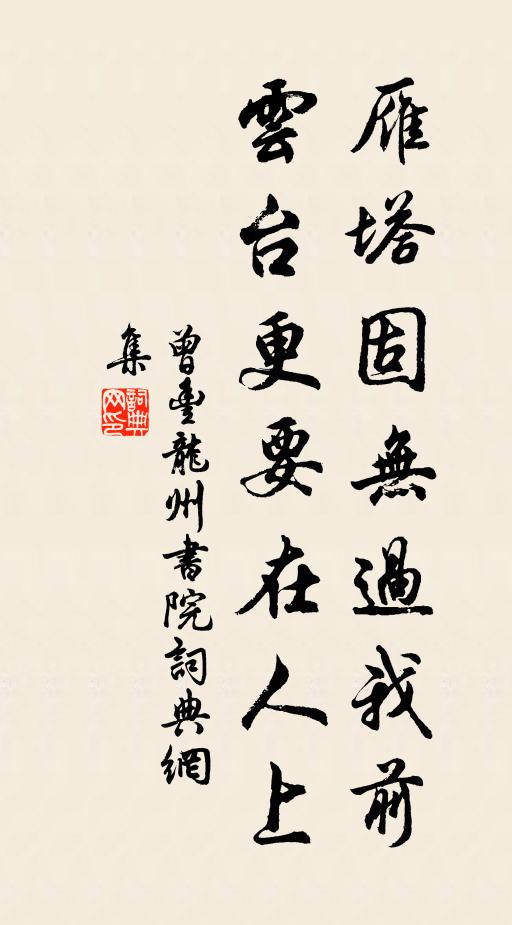 雁塔固無過我前
雲台更要在人上
曾豐龍州書院詞典網
集
詞典
网印